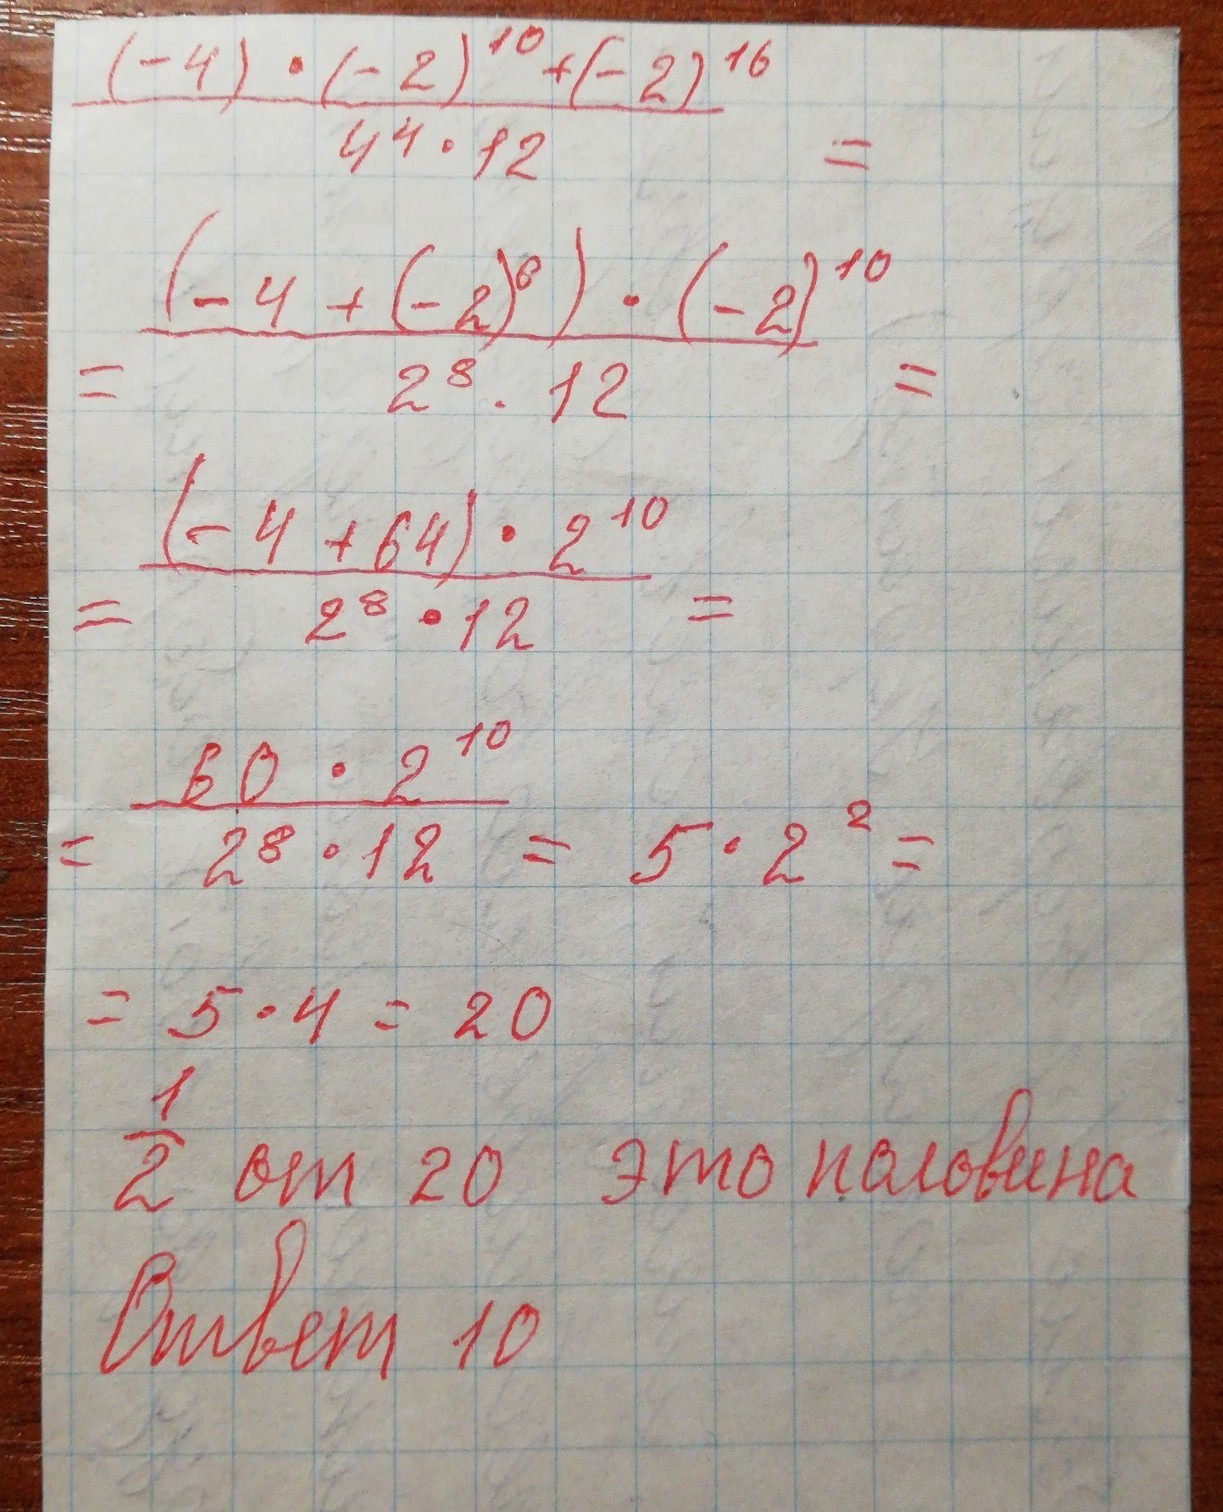 (-4) · (-2)^10 + (-2)^16
4^4 · 12 =
(-4 + (-2)^6) · (-2)^10
= 2^8 · 12 =
(-4 + 64) · 2^10
= 2^8 · 12 =
60 · 2^10
= 2^8 · 12 = 5 · 2^2 =
= 5 · 4 = 20
1/2 от 20 это половина
Ответ 10